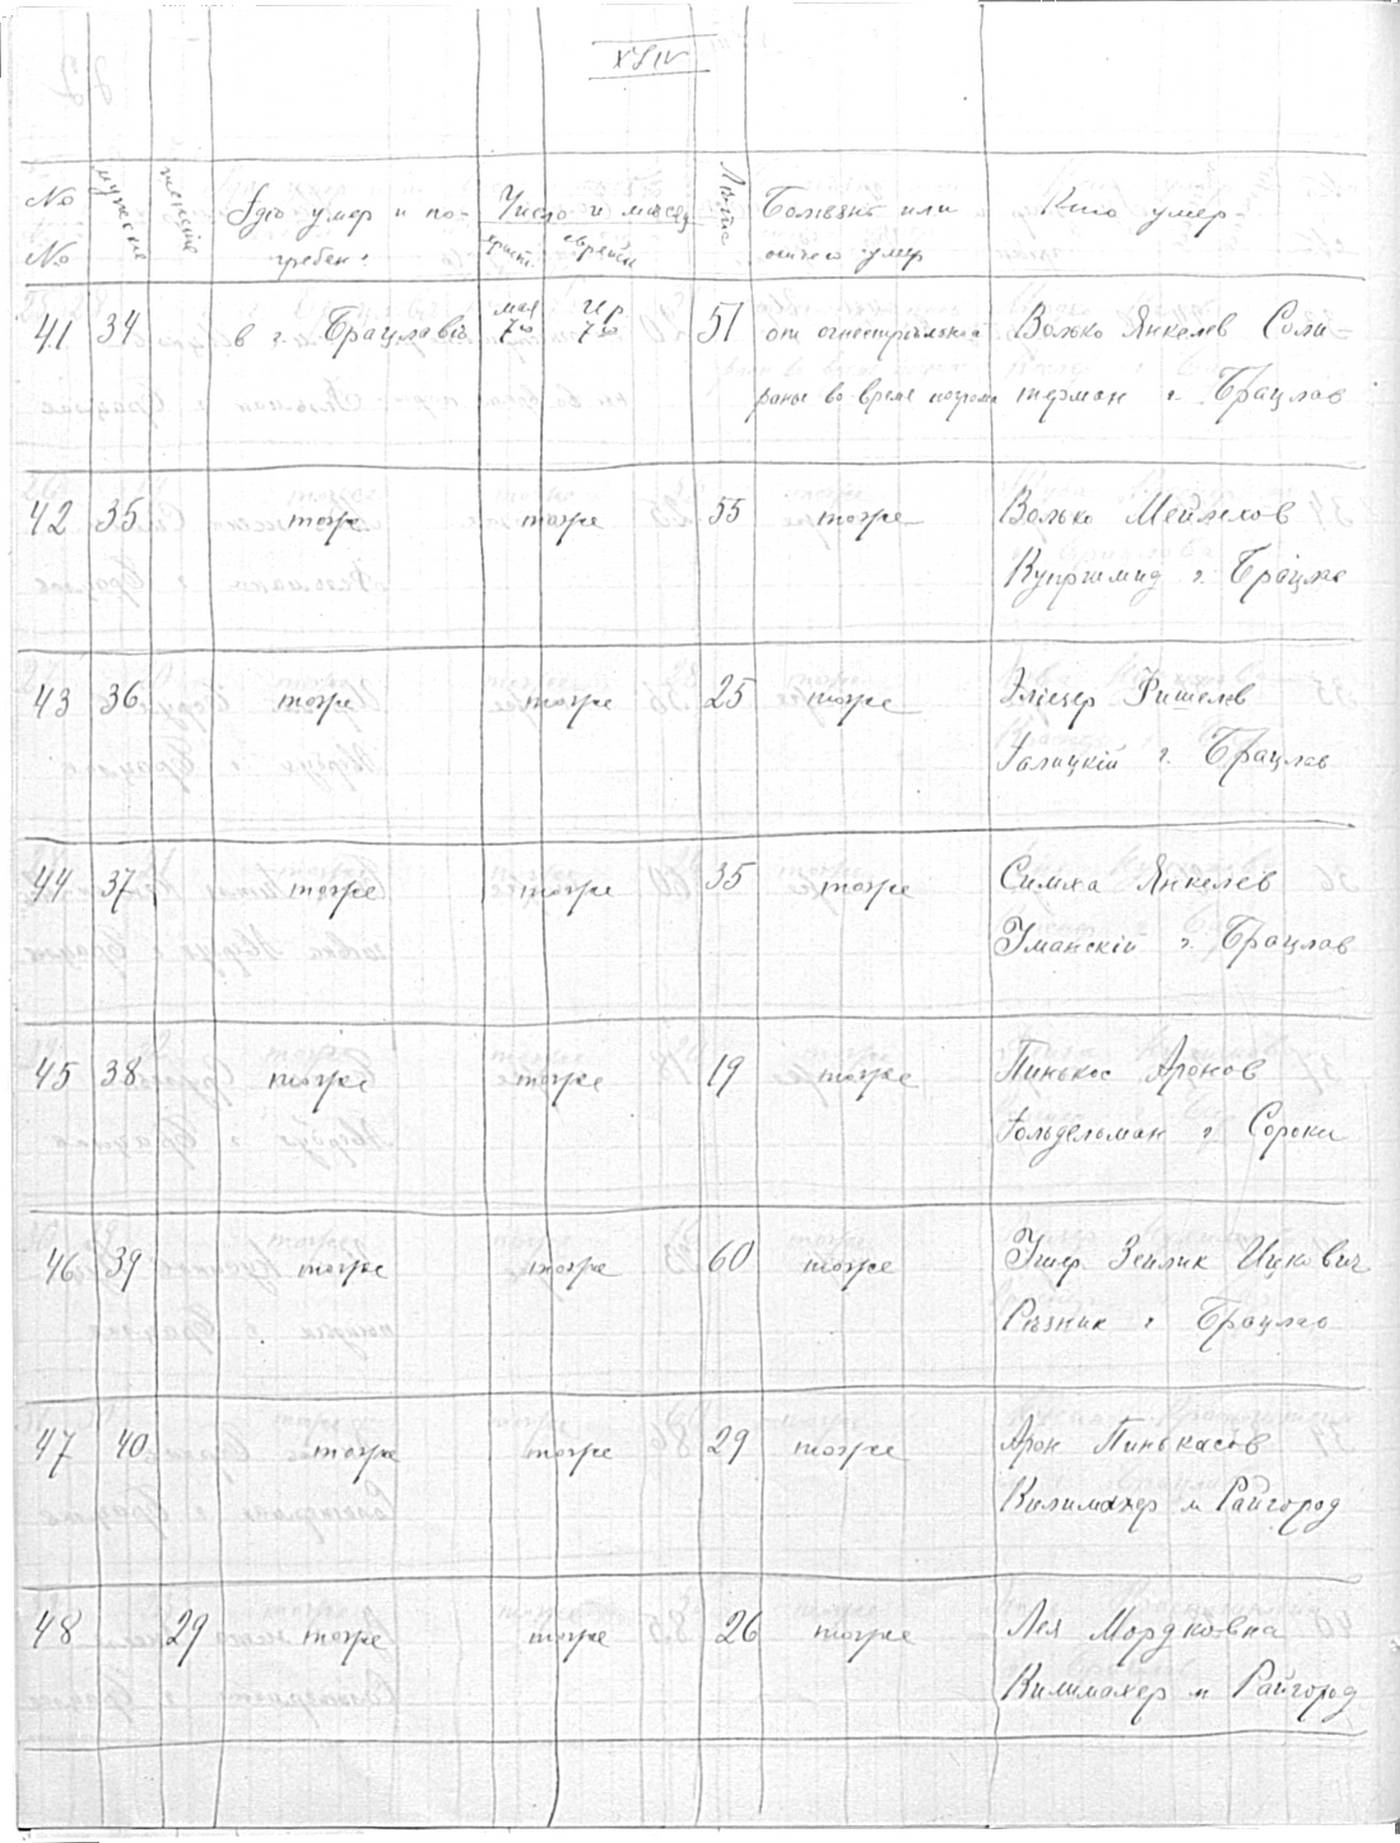 XLIV
№ №
мужескіе
женскіе
Гдѣ умер и по-
гребен:
Число и месяц
христ. еврейск
Лѣта
Болѣзнь или
отчего умер
Кто умер-
41 34 в г. Брацлавѣ мая 7го Ир 7го 51 от огнестрѣльной Волько Янкелев Соли-
раны во время погрома терман г. Брацлав
42 35 тоже тоже 55 тоже Волько Мейлехов
Купршмид г. Брацлав
43 36 тоже тоже 25 тоже Эліезер Фишелев
Галицкій г. Брацлав
44 37 тоже тоже 35 тоже Симха Янкелев
Уманскій г. Брацлав
45 38 тоже тоже 19 тоже Пинькос Аронов
Гольдельман г. Сороки
46 39 тоже тоже 60 тоже Зейлик Ицкович
Рѣзник г Брацлав
47 40 тоже тоже 29 тоже Арон Пинькасов
Килимахер м Райгород
48 29 тоже тоже 26 тоже Лея Мордковна
Килимахер м Райгород